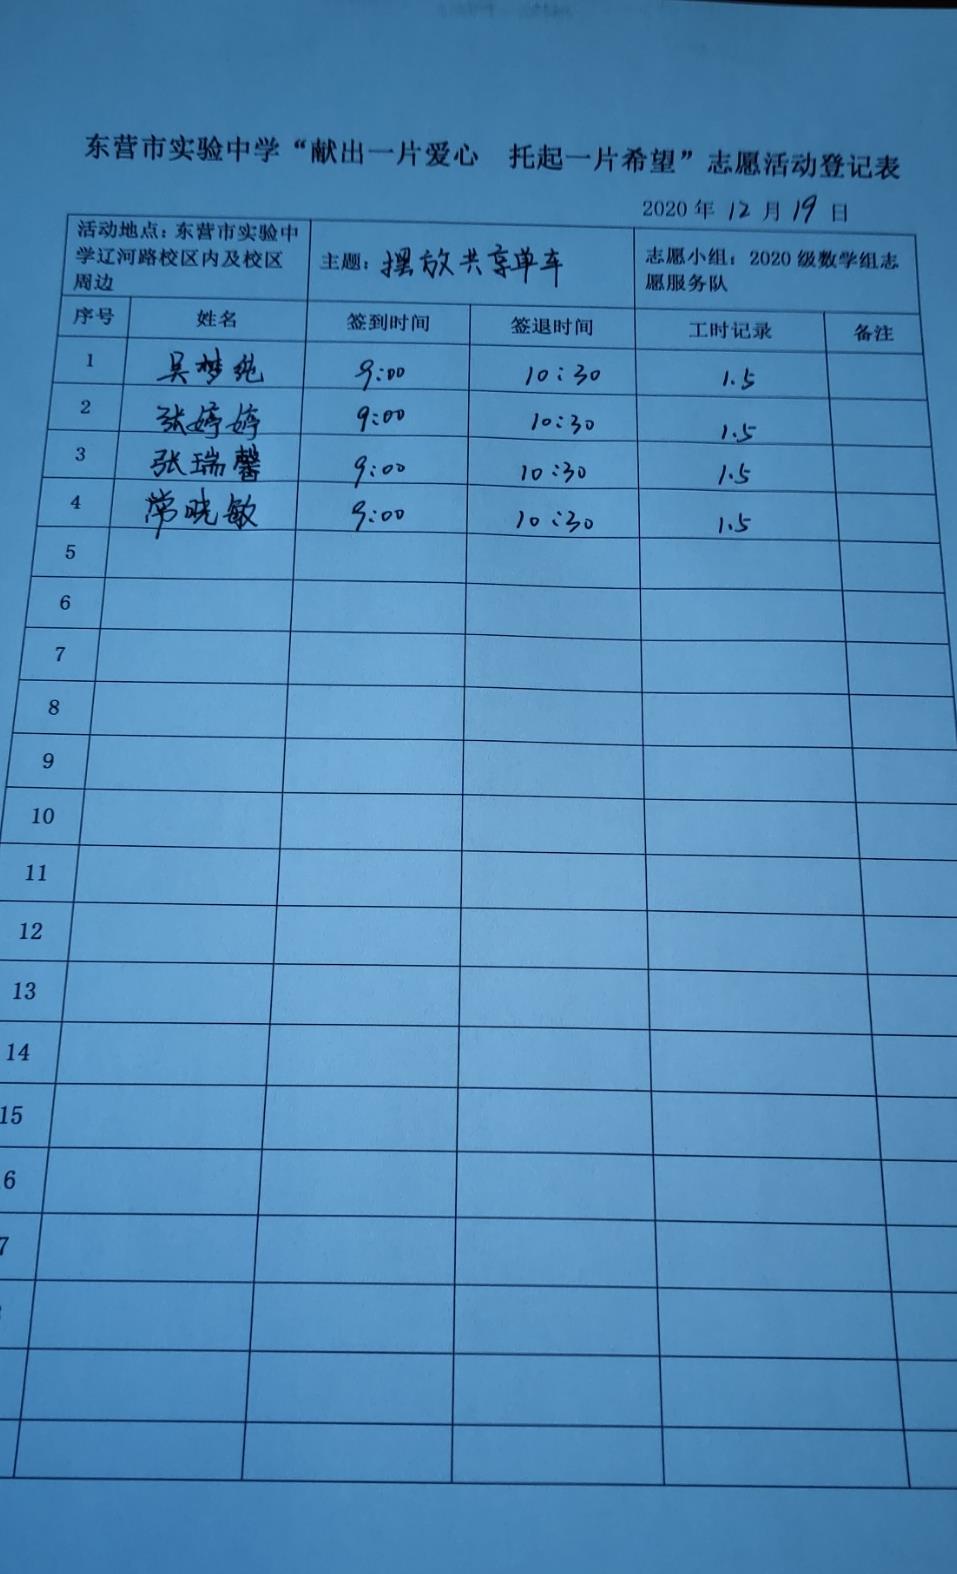 东营市实验中学“献出一片爱心 托起一片希望”志愿活动登记表
2020 年 12 月 19 日
活动地点：东营市实验中
学辽河路校区内及校区
周边
主题：摆放共享单车
志愿小组：2020 级数学组志
愿服务队
序号 姓名 签到时间 签退时间 工时记录 备注
1 吴梦纯 9:00 10:30 1.5
2 张婷婷 9:00 10:30 1.5
3 张瑞馨 9:00 10:30 1.5
4 常晓敏 9:00 10:30 1.5
5
6
7
8
9
10
11
12
13
14
15
6
7